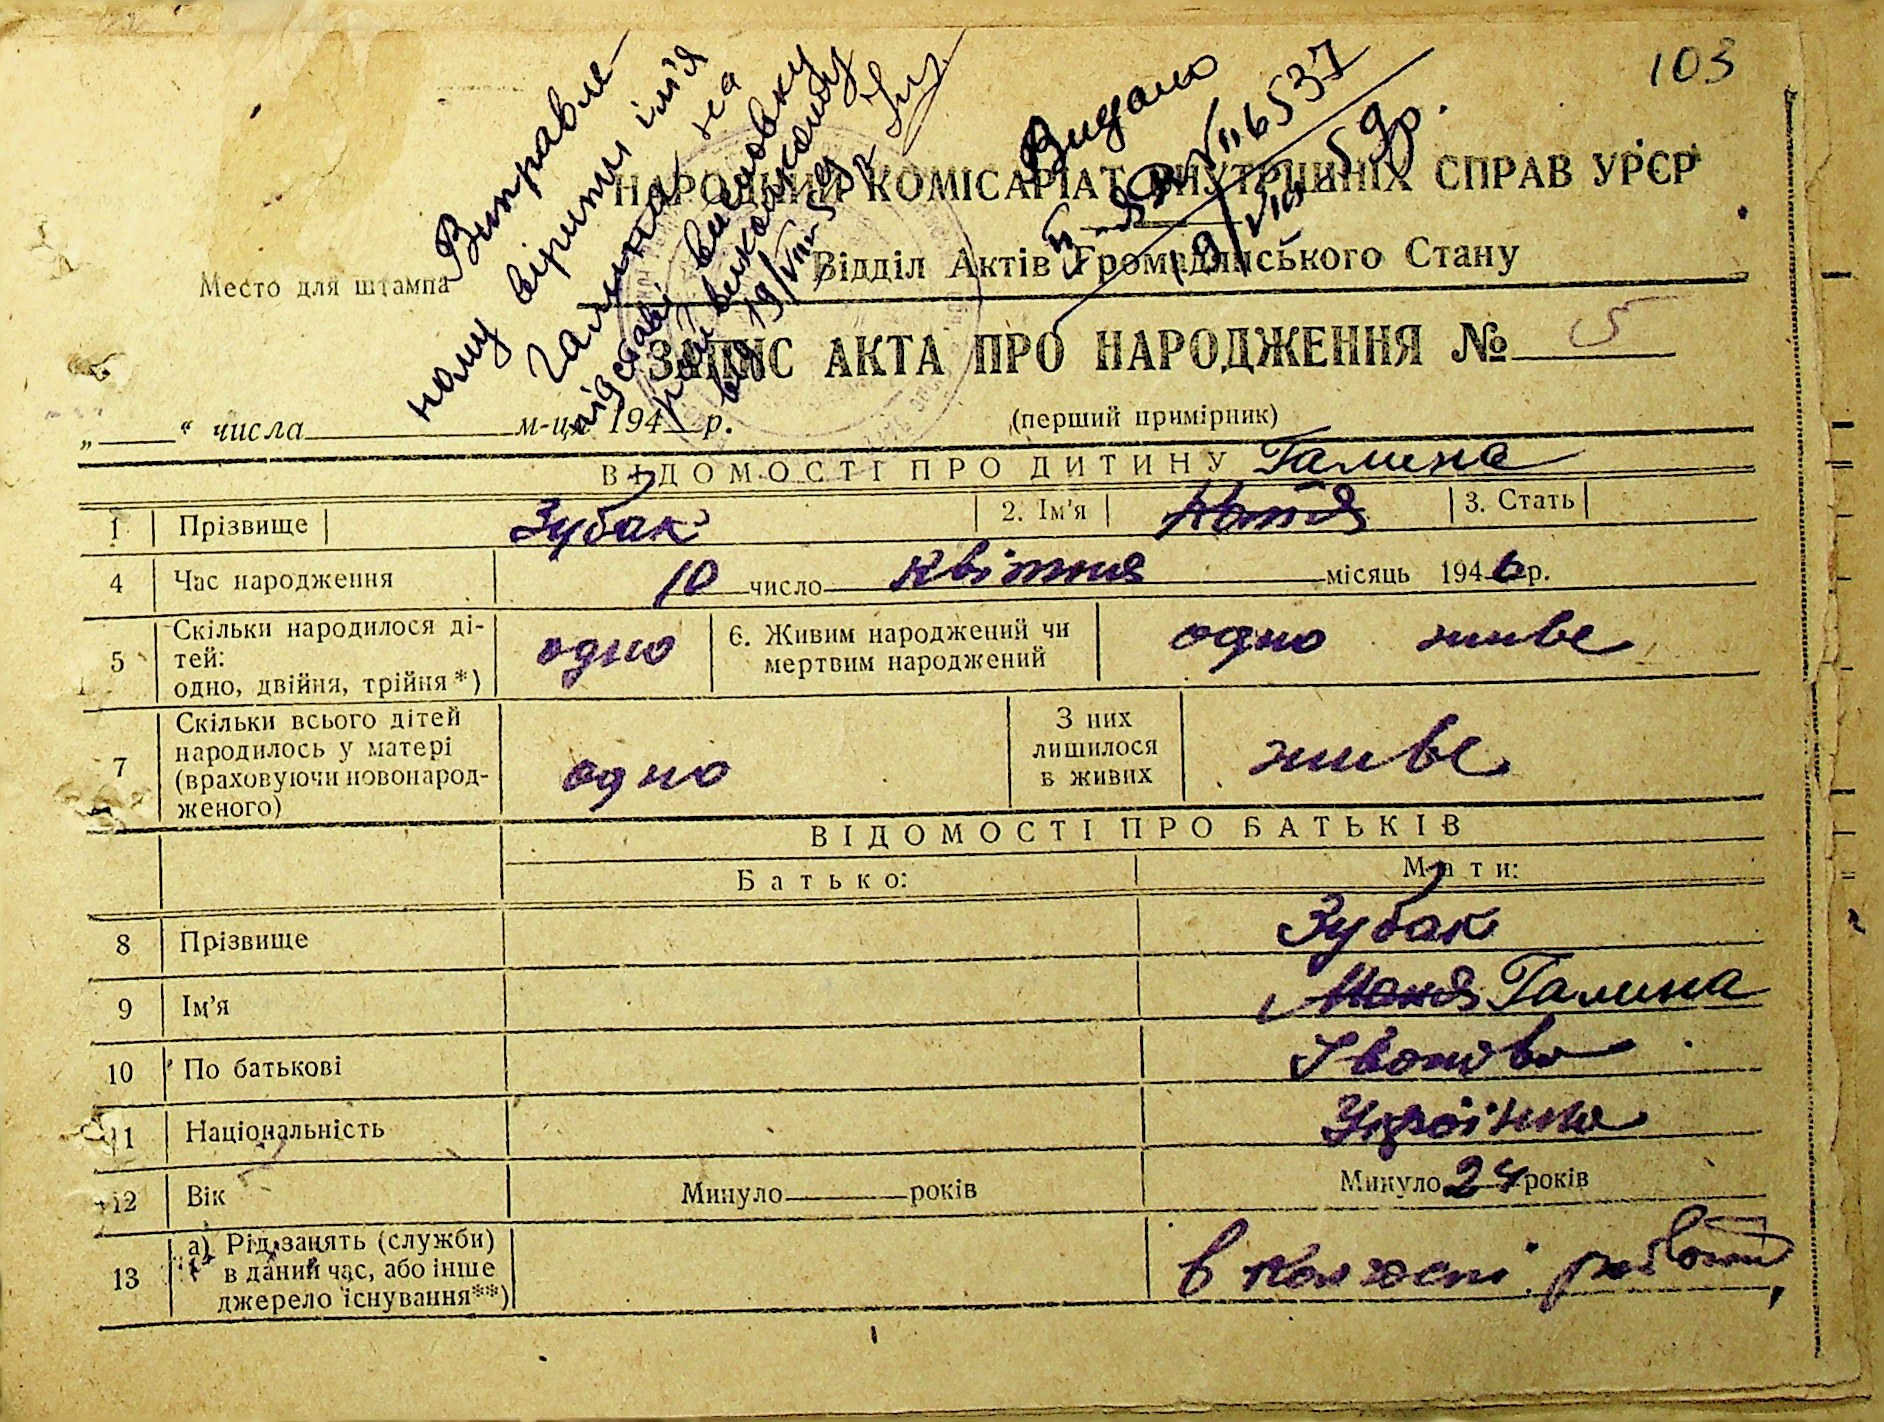 103
Виправле-
ному вірити ім'я
Галина на
підставі висновку
райвиконкому
від 19/VIII-59 р
Видано
II-ЯР № 116537
19/VIII-59р.
НАРОДНИЙ КОМІСАРІАТ ВНУТРІШНІХ СПРАВ УРСР
Место для штампа
Відділ Актів Громадянського Стану
ЗАПИС АКТА ПРО НАРОДЖЕННЯ № 5
„ “ числа м-ця 194 р. (перший примірник)
ВІДОМОСТІ ПРО ДИТИНУ Галина
1 Прізвище Зубак 2. Ім'я Катя 3. Стать
4 Час народження 10 число квітня місяць 1946 р.
5 Скільки народилося ді-
тей:
одно, двійня, трійня*) одно 6. Живим народжений чи
мертвим народжений одно живе
7 Скільки всього дітей
народилось у матері
(враховуючи новонарод-
женого) одно З них
лишилося
в живих живе
ВІДОМОСТІ ПРО БАТЬКІВ
Батько: Мати:
8 Прізвище Зубак
9 Ім'я Галина
10 По батькові Іванівна
11 Національність Українка
12 Вік Минуло років Минуло 24 років
13 а) Рід занять (служби)
в даний час, або інше
джерело існування**) в колгоспі